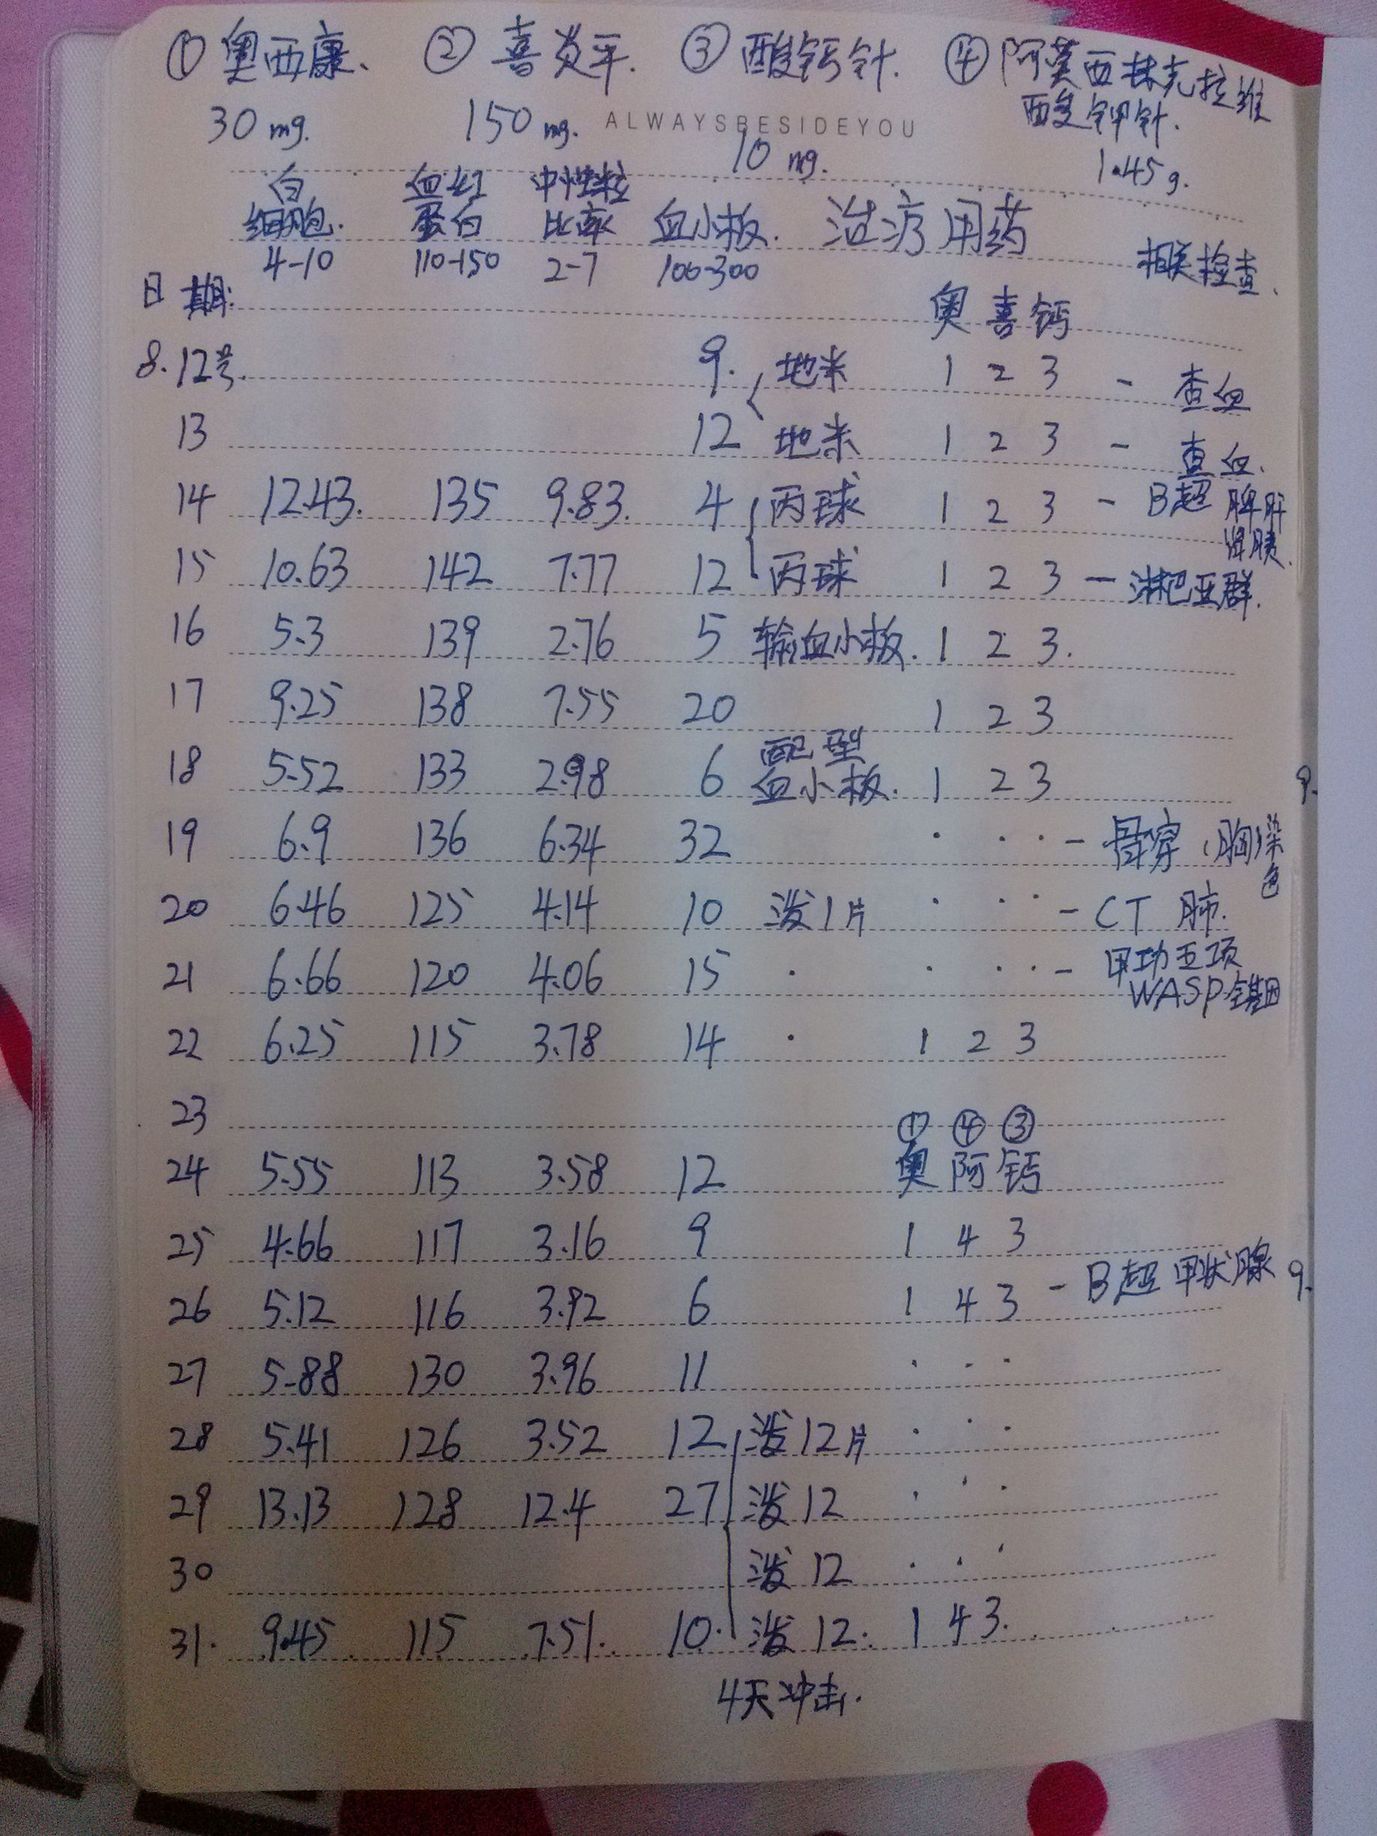 ① 奥西康、 ② 喜炎平. ③ 酸钙针. ④ 阿莫西林克拉维
酸钾针.
30 mg. 150 mg. ALWAYSBESIDEYOU 10 mg. 1.45 g.
白 血红 中性粒
细胞. 蛋白 比率 血小板. 治疗用药
4-10 110-150 2-7 100-300 相关检查.
日期: 奥 喜 钙
8.12号. 9. 地米 1 2 3 - 查血
13 12 地米 1 2 3 - 查血.
14 12.43. 135 9.83. 4 丙球 1 2 3 - B超 脾肝
肾胰.
15 10.63 142 7.77 12 丙球 1 2 3 - 淋巴亚群.
16 5.3 139 2.76 5 输血小板. 1 2 3.
17 9.25 138 7.55 20 1 2 3
配型
18 5.52 133 2.98 6 血小板. 1 2 3 9.
19 6.9 136 6.34 32 · · · - 骨穿 (胸) 染
色
20 6.46 125 4.14 10 泼1片 · · · - CT 肺.
21 6.66 120 4.06 15 · · · · - 甲功五项
WASP 全基因
22 6.25 115 3.78 14 · 1 2 3
23 ① ④ ③
24 5.55 113 3.58 12 奥 阿 钙
25 4.66 117 3.16 9 1 4 3
26 5.12 116 3.92 6 1 4 3 - B超 甲状腺 9.
27 5.88 130 3.96 11 · · ·
28 5.41 126 3.52 12 泼12片 · · ·
29 13.13 128 12.4 27 泼12 · · ·
30 泼12 · · ·
31. 9.45 115 7.51. 10. 泼12. 1 4 3.
4天冲击.